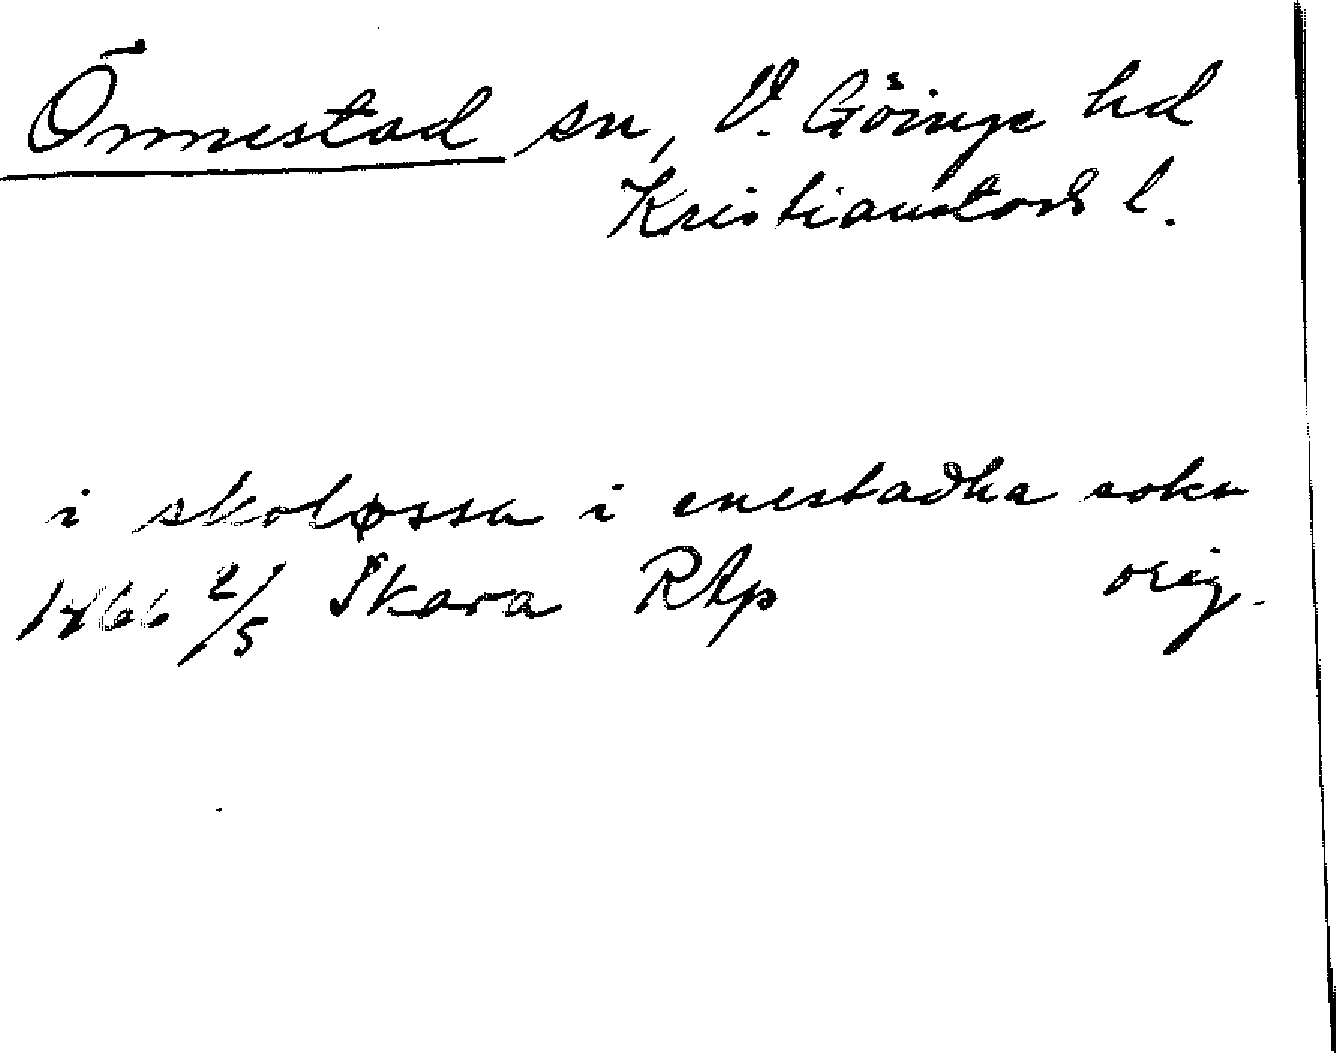 Önnestad sn, V. Göinge hd
Kristianstads l.
i skoløssa i enestadha sokn
1466 2/5 Skara RAp orig.